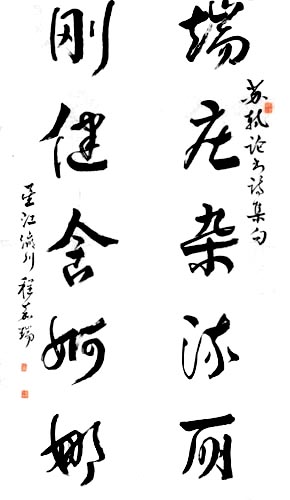 苏轼论书诗集句
端庄杂流丽
刚健含婀娜
江川程瑞